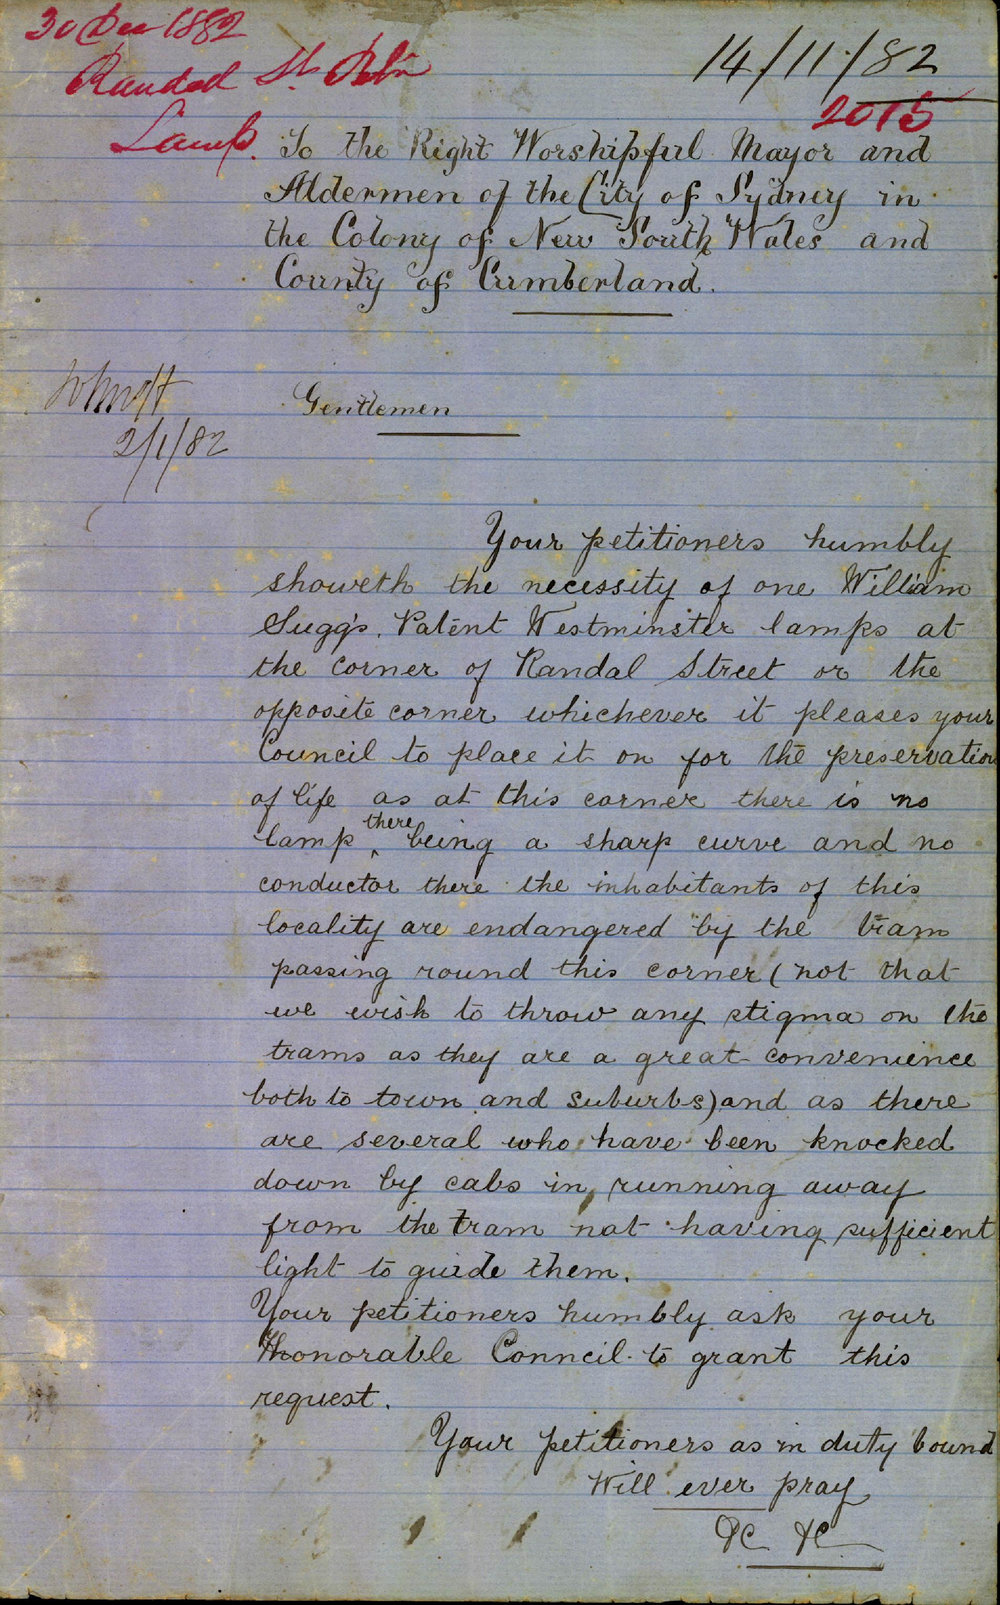 30 Dec 1882
Randal St. Ptn
Lamp.
14/11/82
2015
To the Right Worshipful Mayor and
Aldermen of the City of Sydney in
the Colony of New South Wales and
County of Cumberland.
2/1/82
Gentlemen
Your petitioners humbly
showeth the necessity of one William
Sugg's Patent Westminster lamps at
the corner of Randal Street or the
opposite corner whichever it pleases your
Council to place it on for the preservation
of life as at this corner there is no
lamp there being a sharp curve and no
conductor there the inhabitants of this
locality are endangered by the tram
passing round this corner (not that
we wish to throw any stigma on the
trams as they are a great convenience
both to town and suburbs) and as there
are several who have been knocked
down by cabs in running away
from the tram not having sufficient
light to guide them.
Your petitioners humbly ask your
Honorable Council to grant this
request.
Your petitioners as in duty bound
Will ever pray
&c &c